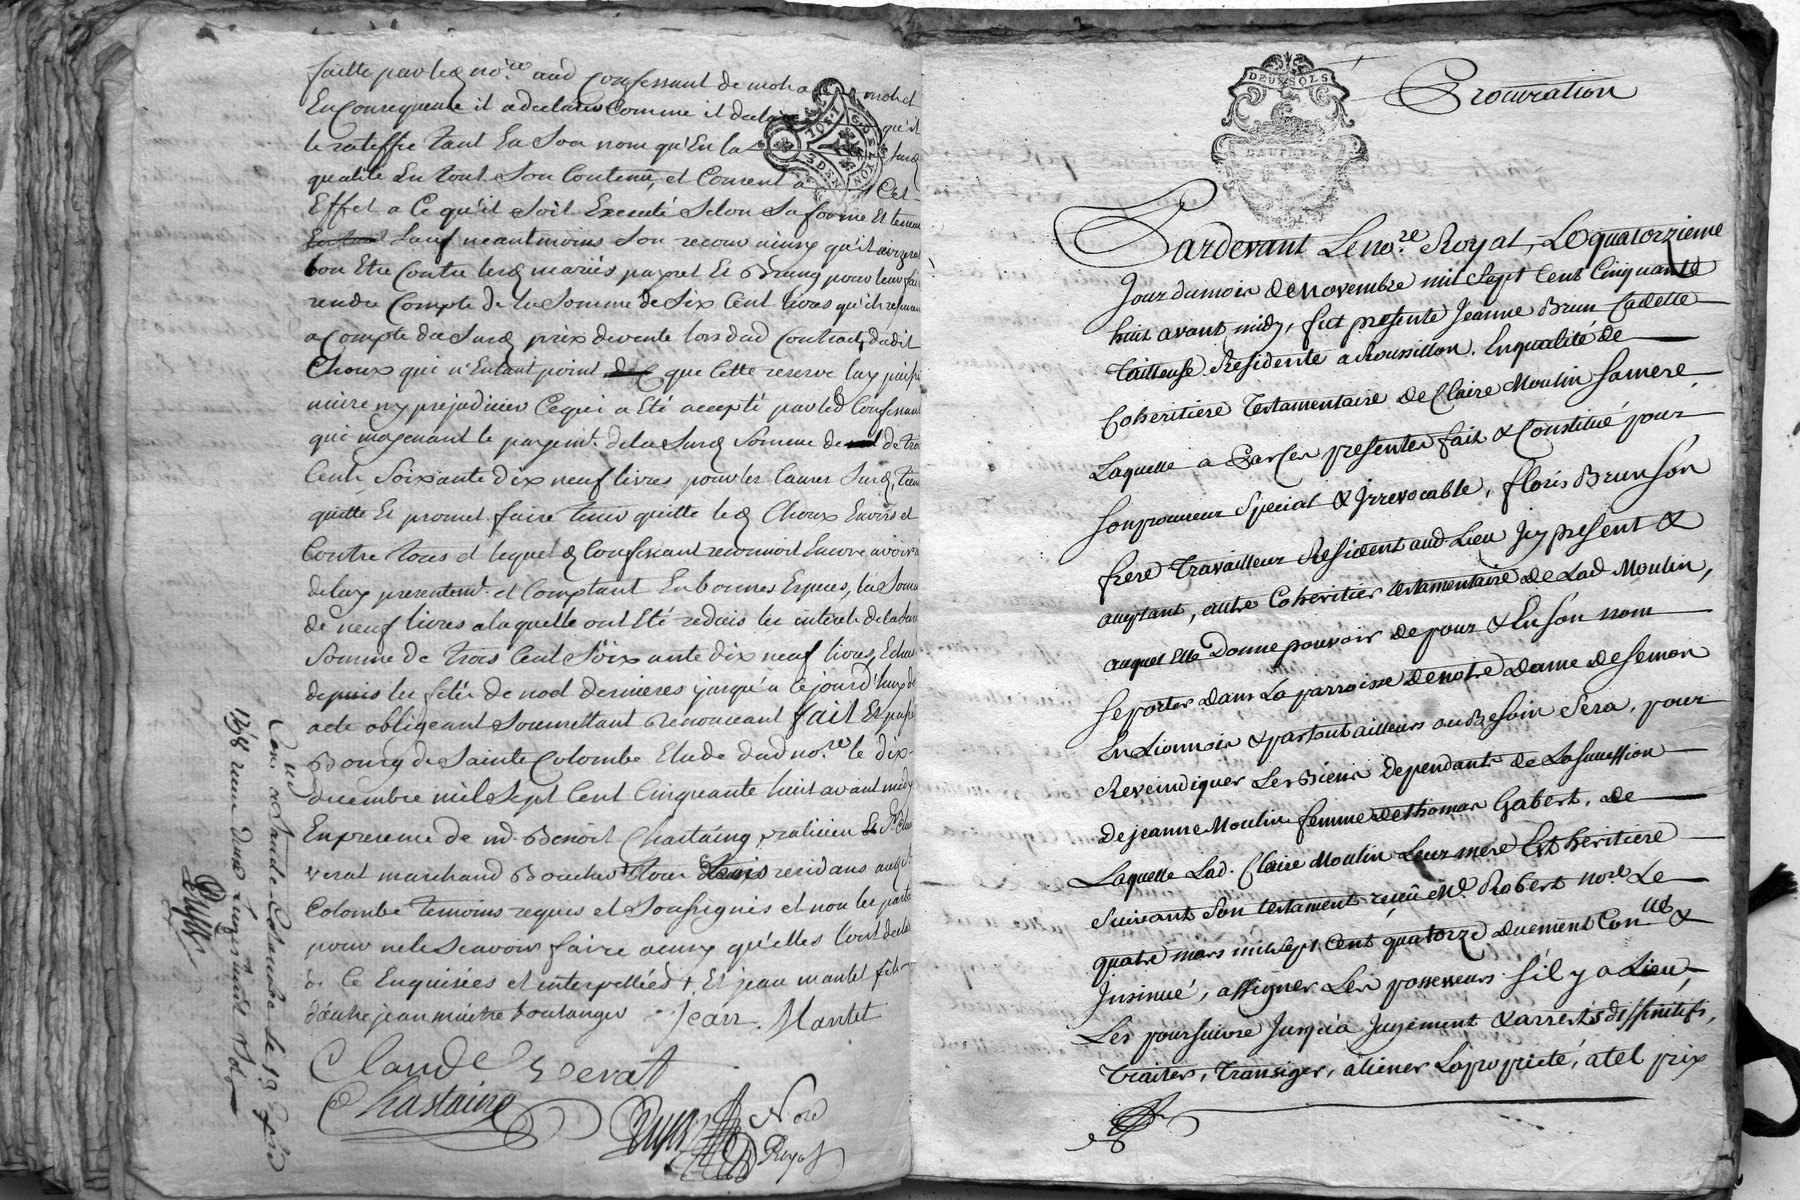 faitte par led no.re aud Confessant de mot a mot et
En Consequence il a declaré Comme il declare qu'il
le ratiffie tant En Son nom qu'En la Susd
qualité En tout Son Contenu, et Consent a Cet
Effet a Ce qu'il Soit Executé Selon Sa forme Et teneur
Sauf neantmoins Son recour mieux qu'il avizera
bon Etre Contre lesd mariés payret Et Brung pour leur faire
rendre Compte de la Somme de Six Cent livres qu'ils
a Compte du Susd prix de vente lors dud Contract, dudit
Choux qui n'Entant point que Cette reserve luy puisse
nuire ny prejudicier Ce qui a Eté accepté par led Confessant
qui moyenant le payemt. de la Susd Somme de de trois
Cent Soixante dix neuf livres pour les Causes Susd, tient
quitte Et promet faire tenir quitte led Choux Envers et
Contre tous et lequel d Confessant reconnoit Encore avoir
de luy presentemt. et Comptant En bonnes Especes, la Somme
de neuf livres a laquelle ont Eté reduis les interets de lad
Somme de trois Cent Soixante dix neuf livres, Echus
depuis les fetes de noel dernieres jusqu'a Ce jourd'huy de
acte obligeant Soumettant Renonceant fait Et passé
Bourg de Sainte Colombe Etude dud no.re le dix-
decembre mil Sept Cent Cinquante huit avant midy
En presence de m.d Benoit Chastaing praticien Et Sr Claude
verat marchand Boucher tous residans audit
Colombe temoins requis et Soussignés et non les parties
pour ne le Scavoir faire ainsy qu'elles l'ont declaré
de Ce Enquisées et interpellées +, Et jean mantet fils
d'autre jean maitre boulanger Jean Mantet
Claude verat
Chastaing
No.re
Royal
Con.lé a Sainte Colombe Le 19
1758 reçu
Procuration
DEUX SOLS
DAUPHINÉ
Pardevant Le no.re Royal, Le quatorzieme
Jour du mois de Novembre mil Sept Cent Cinquante
huit avant midy, fut presente Jeanne Brun Cadette
Tailleuse Residente a Roussillon. En qualité de
Coheritiere testamentaire de Claire Moulin Sa mere
Laquelle a Par Ces presentes fait & Constitué pour
Son procureur Special & Irrevocable, floris Brun Son
frere Travailleur Resident aud. Lieu Jcy present &
acceptant, autre Coheritier testamentaire de Lad Moulin,
auquel Elle Donne pouvoir de pour & En Son nom
Se porter dans La parroisse de notre dame de Semon
En Lionnois & partout ailleurs ou Besoin Sera, pour
Reveindiquer Les Biens dependants de La Succession
de jeanne Moulin femme de thomas Gabert, de
Laquelle Lad. Claire Moulin Leur mere Est heritiere
Suivant Son testament reçû Me. Robert no.re Le
quatre mars mil Sept Cent quatorze duement Con.llé &
Jnsinué, assigner Les possesseurs S'il y a Lieu,
Les poursuivre Jusqu'a Jugement & arrests diffinitifs,
Traiter, Transiger, aliener La propriété, a tel prix